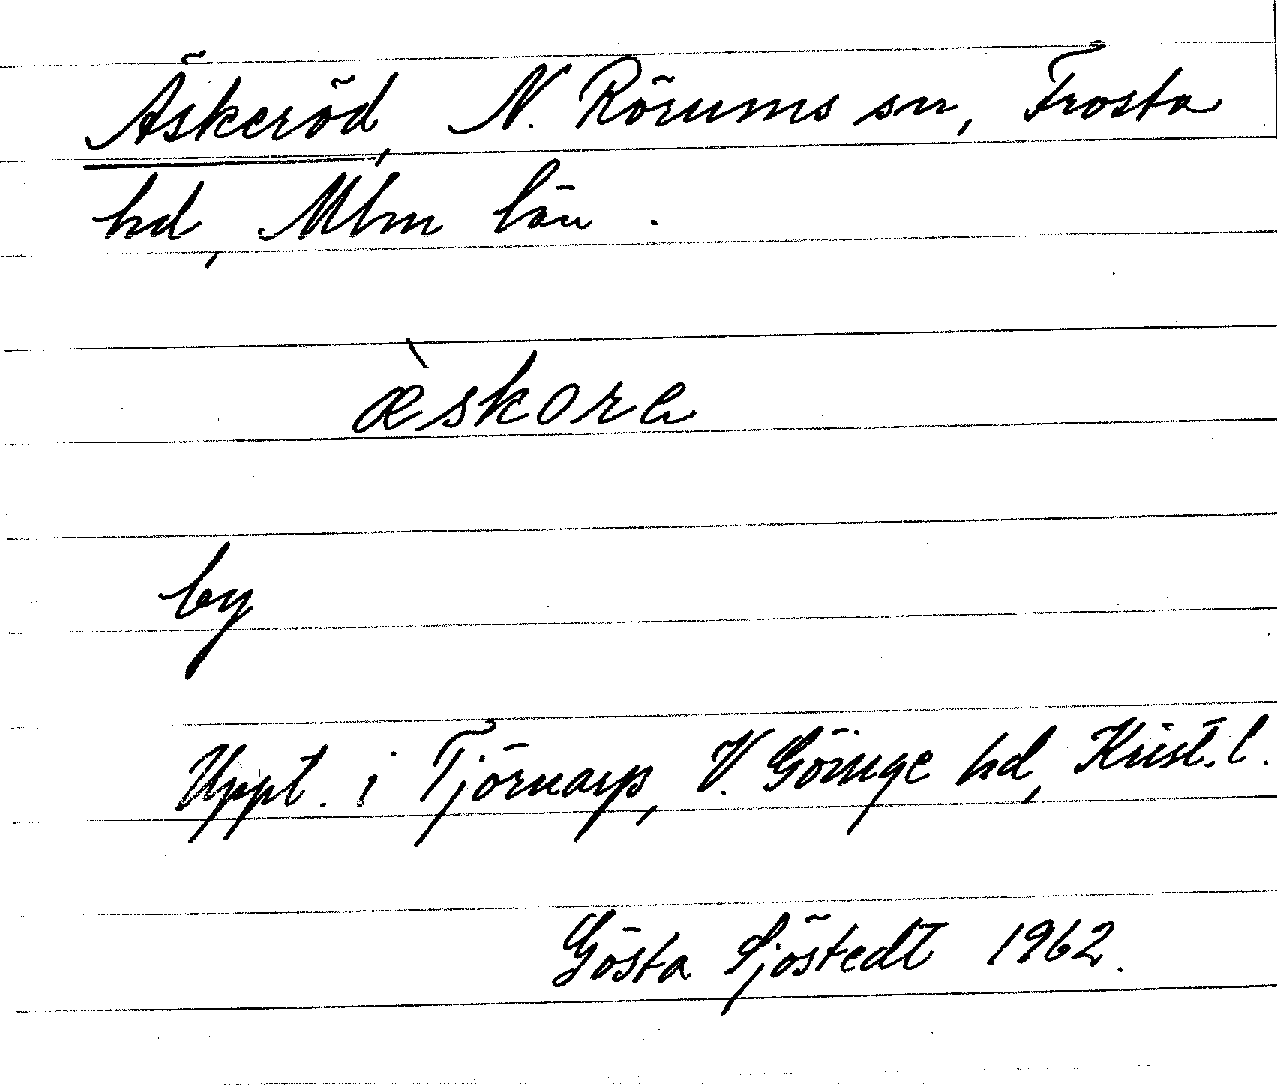 Äskeröd, N. Rörums sn, Frosta
hd, Mlm län.
æ̀skore
by
Uppt. i Tjörnarp, V. Göinge hd, Krist. l.
Gösta Sjöstedt 1962.